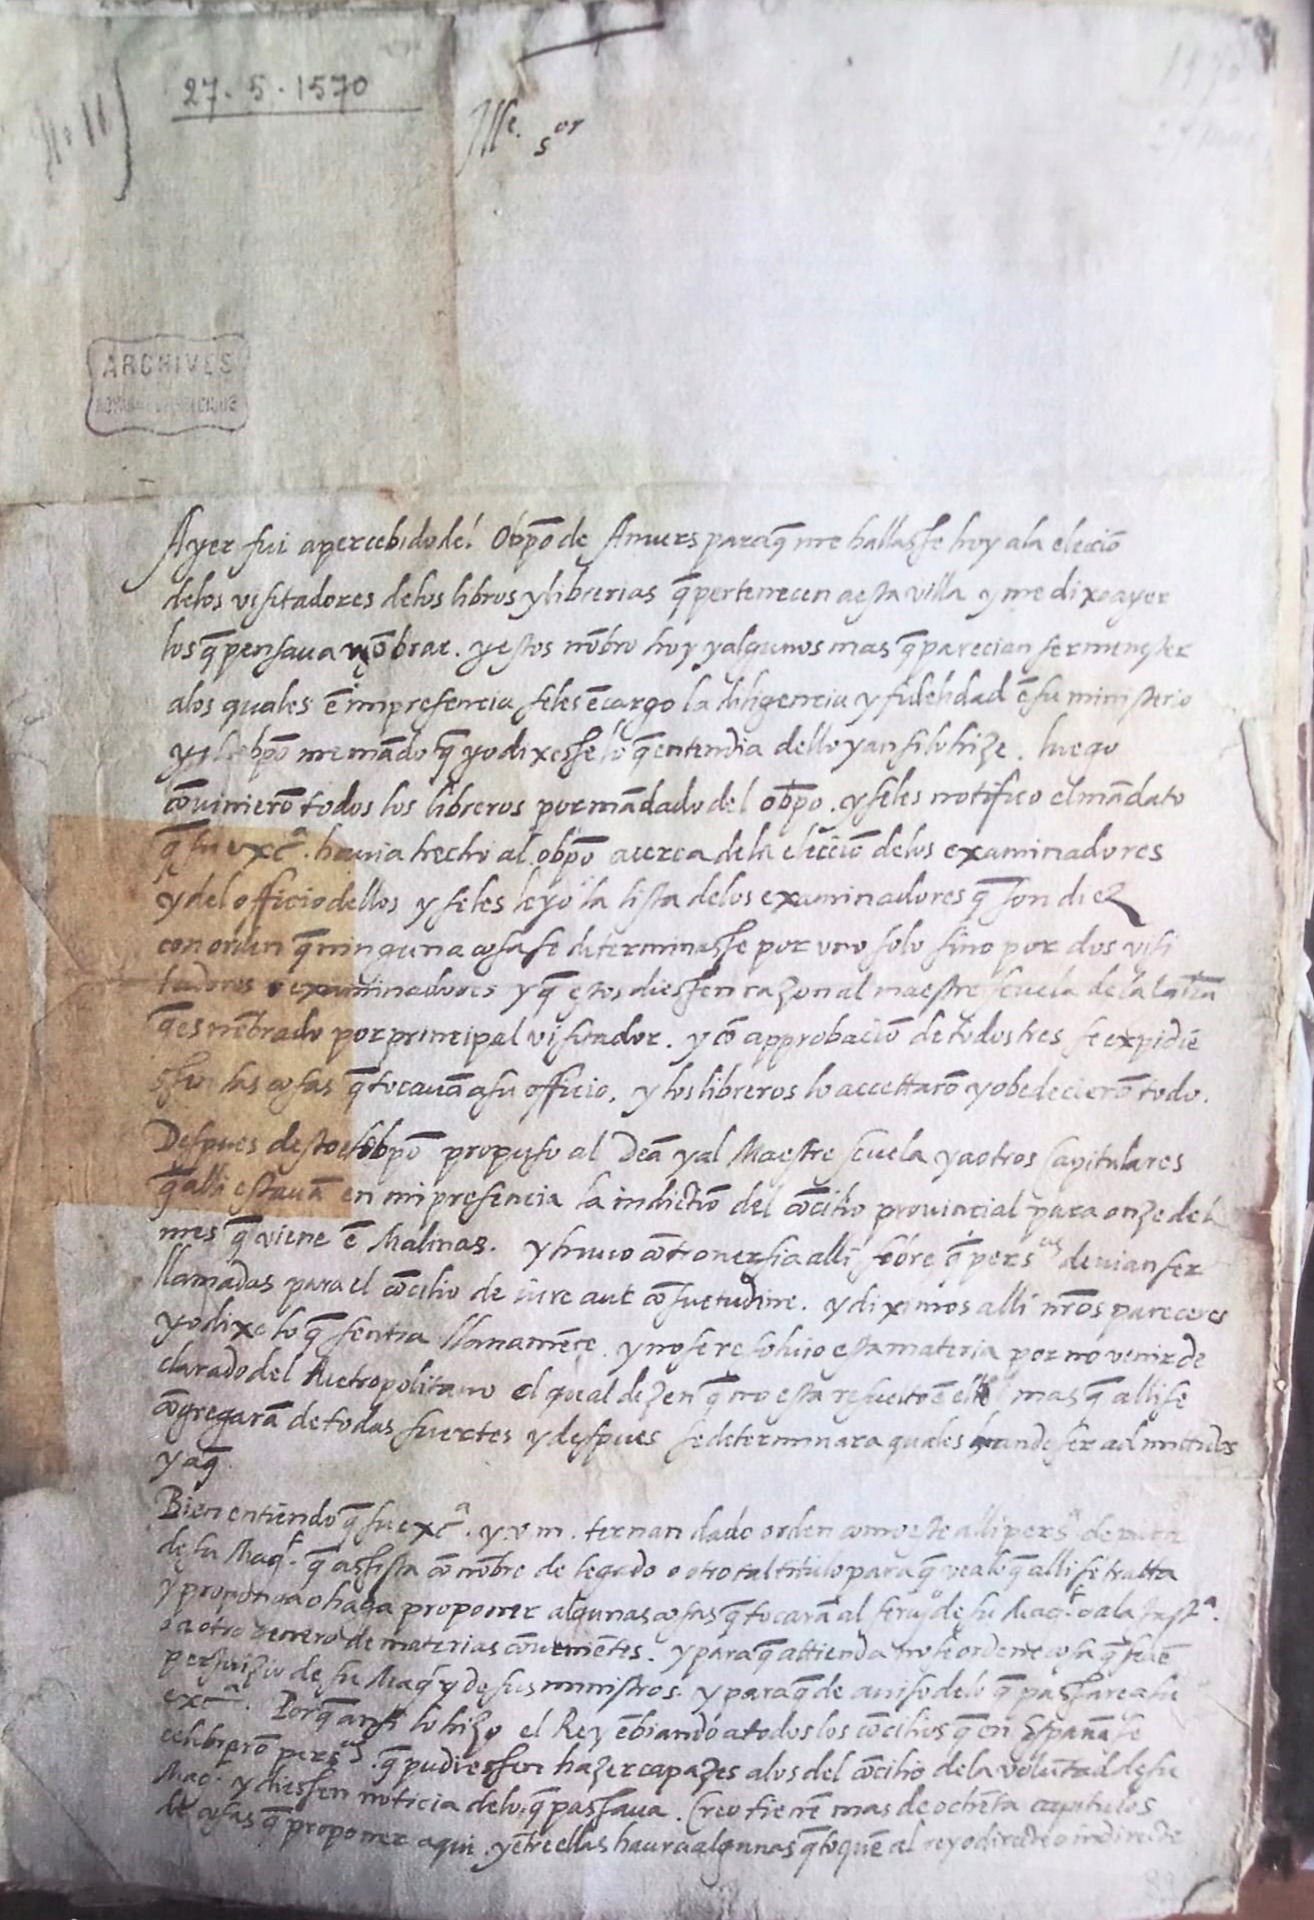 27. 5. 1570
Ille. sor
ARCHIVES
Ayer fui apercebido del Obpō de Anvers paraq̄ me hallasse hoy ala eleciō
delos visitadores delos libros y librerias q̄ pertenecen aesta villa y me dixo ayer
los q̄ pensava nōbrar. y estos nōbro hoy y algunos mas q̄ parecian ser menester
alos quales ē mi presencia seles ēcargo la diligencia y fidelidad ē su ministerio
y el obpō me mādo q̄ yo dixesse lo q̄ entendia dello y ansi lo hize. luego
cōvinierō todos los libreros por mādado del obpō. y seles notifico el mādato
q̄ su excª. havia hecho al obpō acerca dela elecciō delos examinadores
y del officio dellos y seles leyo la lista delos examinadores q̄ son diez
con orden q̄ ninguna cosa se determinasse por uno solo sino por dos visi
tadores o examinadores y q̄ estos diessen razon al maestre scuela dela
q̄ es nōbrado por principal visitador. y cō approbaciō de todos tres se expidiē
ssen las cosas q̄ tocavā a su officio, y los libreros lo accettarō y obedecierō todo.
Despues desto el obpō propuso al Deā y al Maestre scuela y a otros Capitulares
q̄ alli estavā en mi presencia la indictiō del cōcilio provincial para onze del
mes q̄ viene ē Malinas. y huvo cōtroversia alli sobre q̄ persas devian ser
llamadas para el cōcilio de iure aut cōsuetudine. y diximos alli nr̄os pareceres
yo dixe lo q̄ sentia llanamēte. y no se resolvio esta materia por no venir de
clarado del Metropolitano el qual dizen q̄ no esta resuelto ē ello mas q̄ alli se
cōgregarā de todas suertes y despues se determinara quales han de ser admittidos
y aq̄
Bien entiendo q̄ su excª. y v m. ternan dado orden como este alli persª de parte
de su Magt. q̄ assista cō nōbre de legado o otro tal titulo para q̄ vea lo q̄ alli se tratta
y proponga o haga proponer algunas cosas q̄ tocarā al servo de su Magt. o ala Justª.
o a otro genero de materias cōvenientes. y para q̄ attienda no se ordene cosa q̄ sea ē
perjuizio de su Magt y de sus ministros. y para q̄ de aviso delo q̄ passare a su
excª. Porq̄ ansi lo hizo el Rey ēbiando a todos los cōcilios q̄ en España se
celebrarō persas. q̄ pudiessen hazer capazes alos del cōcilio dela volūtad de su
Magt. y diessen noticia delo q̄ passava. Creo tienē mas de ochēta capitulos
de cosas q̄ proponer aqui. y ētre ellas havra algunas q̄ toquē al rey o directe o indirecte